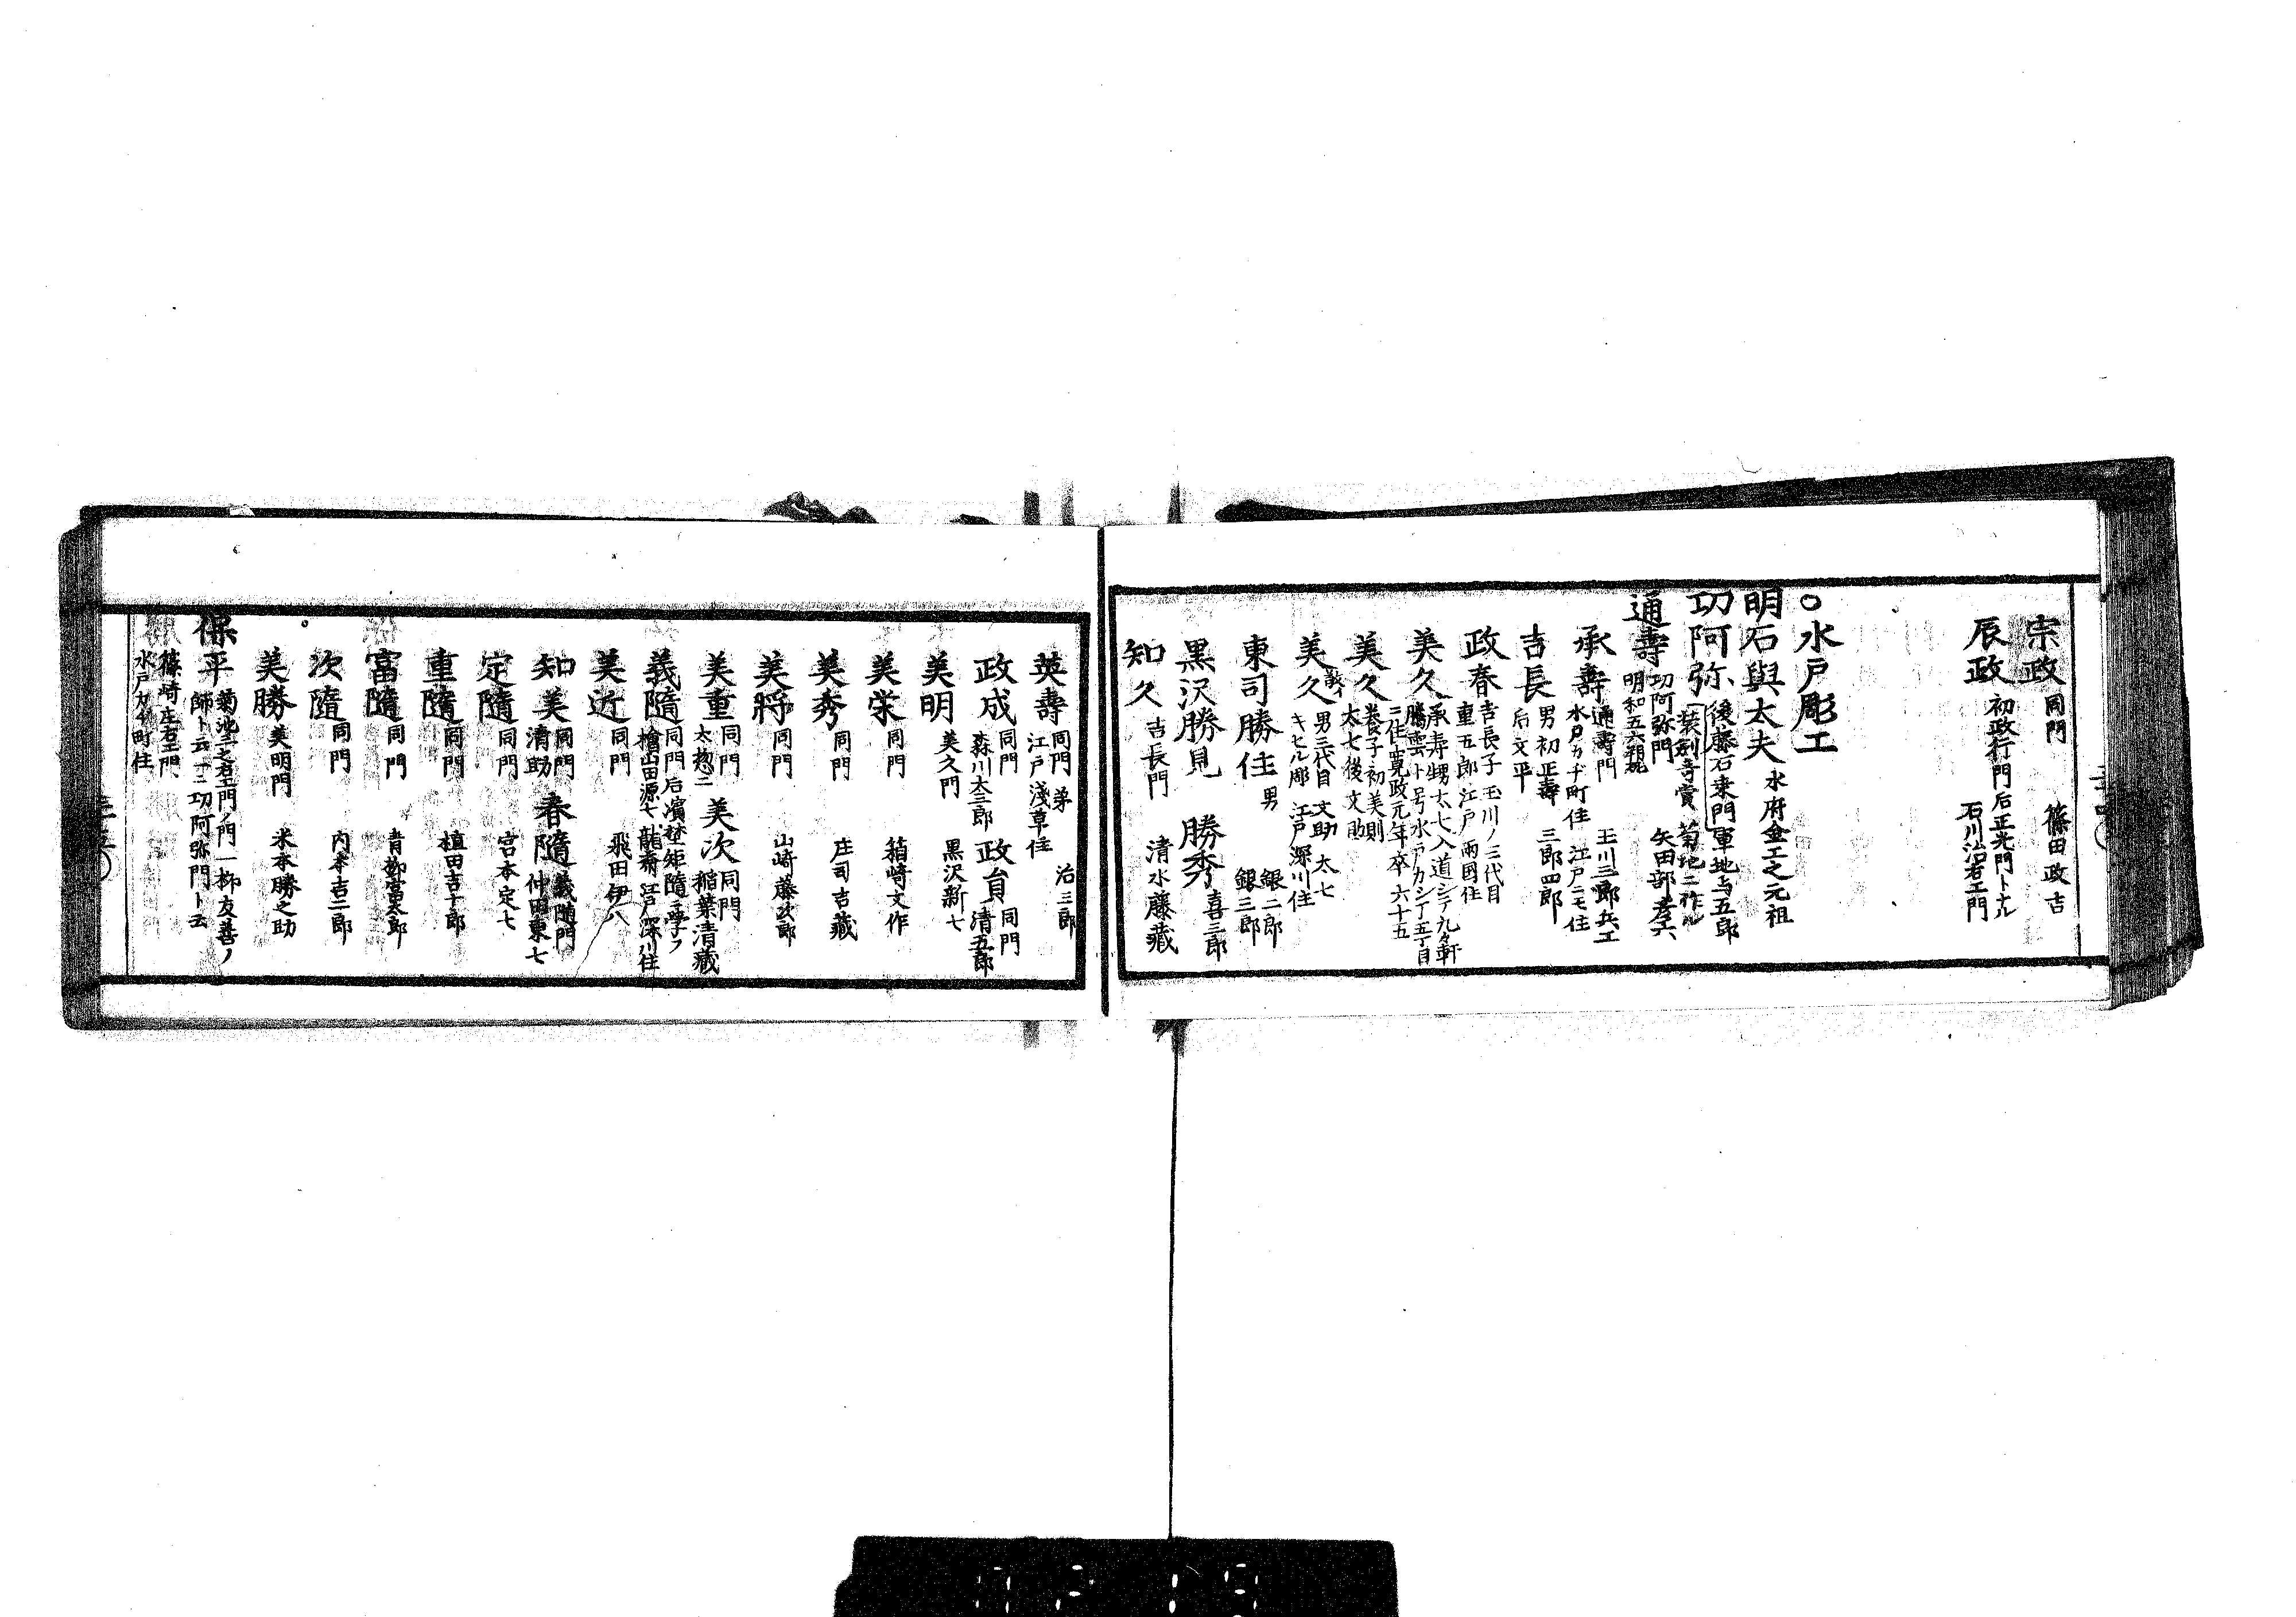 宗政 同門 篠田政吉
辰政 初政行門后正光門トナル
石川治右エ門
○水戸彫工
明石與太夫 水府金工之元祖
功阿弥 後藤石乗門軍地与五郎
装剣奇賞 菊地ニ作ル
通壽 功阿弥門 矢田部
明和五六
承壽 通壽門 玉川三郎兵エ
水戸カヂ町住 江戸ニモ住
吉長 男初正壽 三郎四郎
后文平
政春 吉長子 玉川ノ三代目
重五郎 江戸両國住
美久 承寿甥太七入道シテ九々軒
騰雲ト号水戸カシ丁五丁目
ニ住寛政元年卒六十五
美久 養子初美則
太七後文助
美久 男三代目 文助 太七
キセル彫 江戸深川住
東司勝住 男 銀二郎
銀三郎
黒沢勝見 勝秀 喜三郎
知久 吉長門 清水藤藏
英壽 同門弟 治三郎
江戸淺草住
政成 同門 政貟 同門
森川大三郎 清五郎
美明 美久門 黒沢新七
美栄 同門 箱崎文作
美秀 同門 庄司吉藏
美將 同門 山崎藤次郎
美重 同門 美次 同門
太惣二 稲葉清藏
義隨 同門后濱埜矩隨ニ學フ
檜山田源七 龍斎 江戸深川住
美近 同門 飛田伊八
知美 同門 春隨 義隨門
清助 仲田東七
定隨 同門 宮本定七
重隨 同門 植田吉十郎
富隨 同門 青柳富太郎
次隨 同門 内本吉二郎
美勝 美明門 米本勝之助
保平 菊池之右エ門ノ門一柳友善ノ
師ト云一ニ功阿弥門ト云
篠崎庄右エ門
水戸カヂ町住